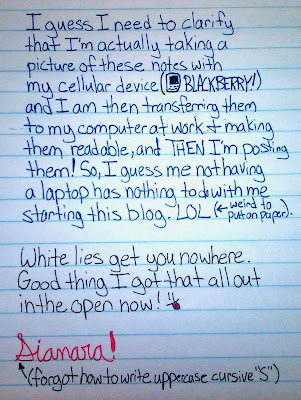 I guess I need to clarify
that I'm actually taking a
picture of these notes with
my cellular device (BLACKBERRY!)
and I am then transferring them
to my computer at work & making
them readable, and THEN I'm posting
them! So, I guess me not having
a laptop has nothing to do with me
starting this blog. LOL (← weird to
put on paper).
White lies get you nowhere.
Good thing I got that all out
in the open now!
Sianara!
(forgot how to write uppercase cursive "S")